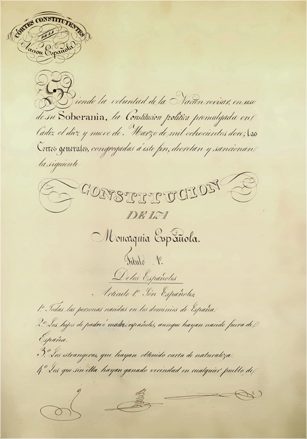 CÓRTES CONSTITUYENTES
DE LA
Nacion Española
Siendo la voluntad de la Nacion revisar, en uso
de su Soberanía, la Constitucion política promulgada en
Cádiz el diez y nueve de Marzo de mil ochocientos doce, las
Cortes generales, congregadas á este fin, decretan y sancionan
la siguiente
CONSTITUCION
DE LA
Monarquía Española.
Título 1º
De los Españoles
Artículo 1º Son Españoles
1º Todas las personas nacidas en los dominios de España.
2º Los hijos de padre ó madre españoles, aunque hayan nacido fuera de
España.
3º Los estrangeros que hayan obtenido carta de naturaleza.
4º Los que sin ella hayan ganado vecindad en cualquier pueblo de